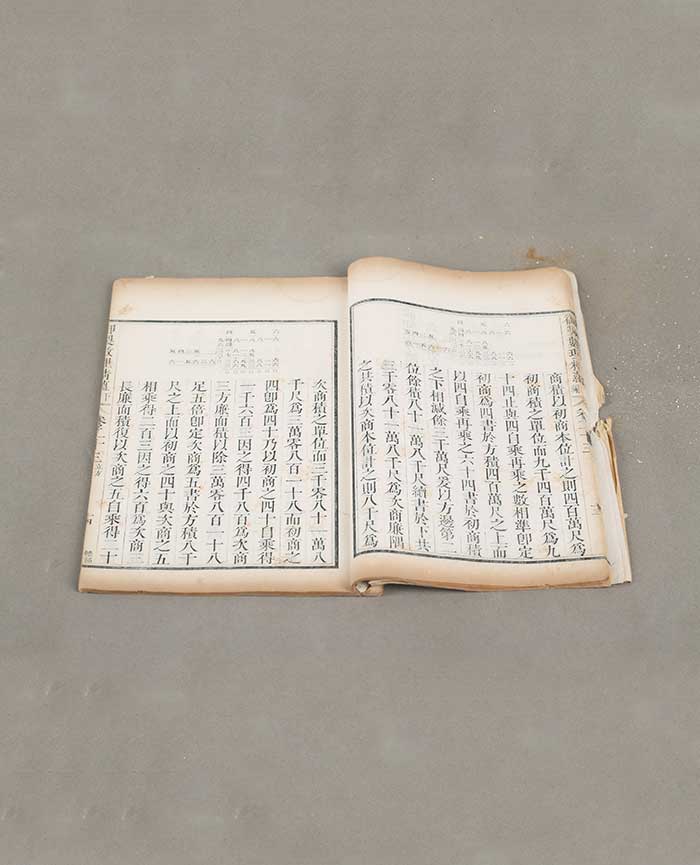 商積以初商本位計之則四百萬尺爲
初商積之單位而九千四百萬尺爲九
十四止與四自乘再乘之數相準即定
初商爲四書於方積四百萬尺之上而
以四自乘再乘之六十四書於初商積
之下相減餘三千萬尺爰以方邊第二
位餘積八十一萬八千尺續書於下共
三千零八十一萬八千尺爲次商廉隅
之共積以次商本位計之則八千尺爲
次商積之單位而三千零八十一萬八
千尺爲三萬零八百一十八而初商之
四即爲四十乃以初商之四十自乘得
一千六百三因之得四千八百爲次商
三方廉面積以除三萬零八百一十八
足五倍即定次商爲五書於方積八千
尺之上而以初商之四十與次商之五
相乘得二百三因之得六百爲次商三
長廉面積復以次商之五自乘得二十